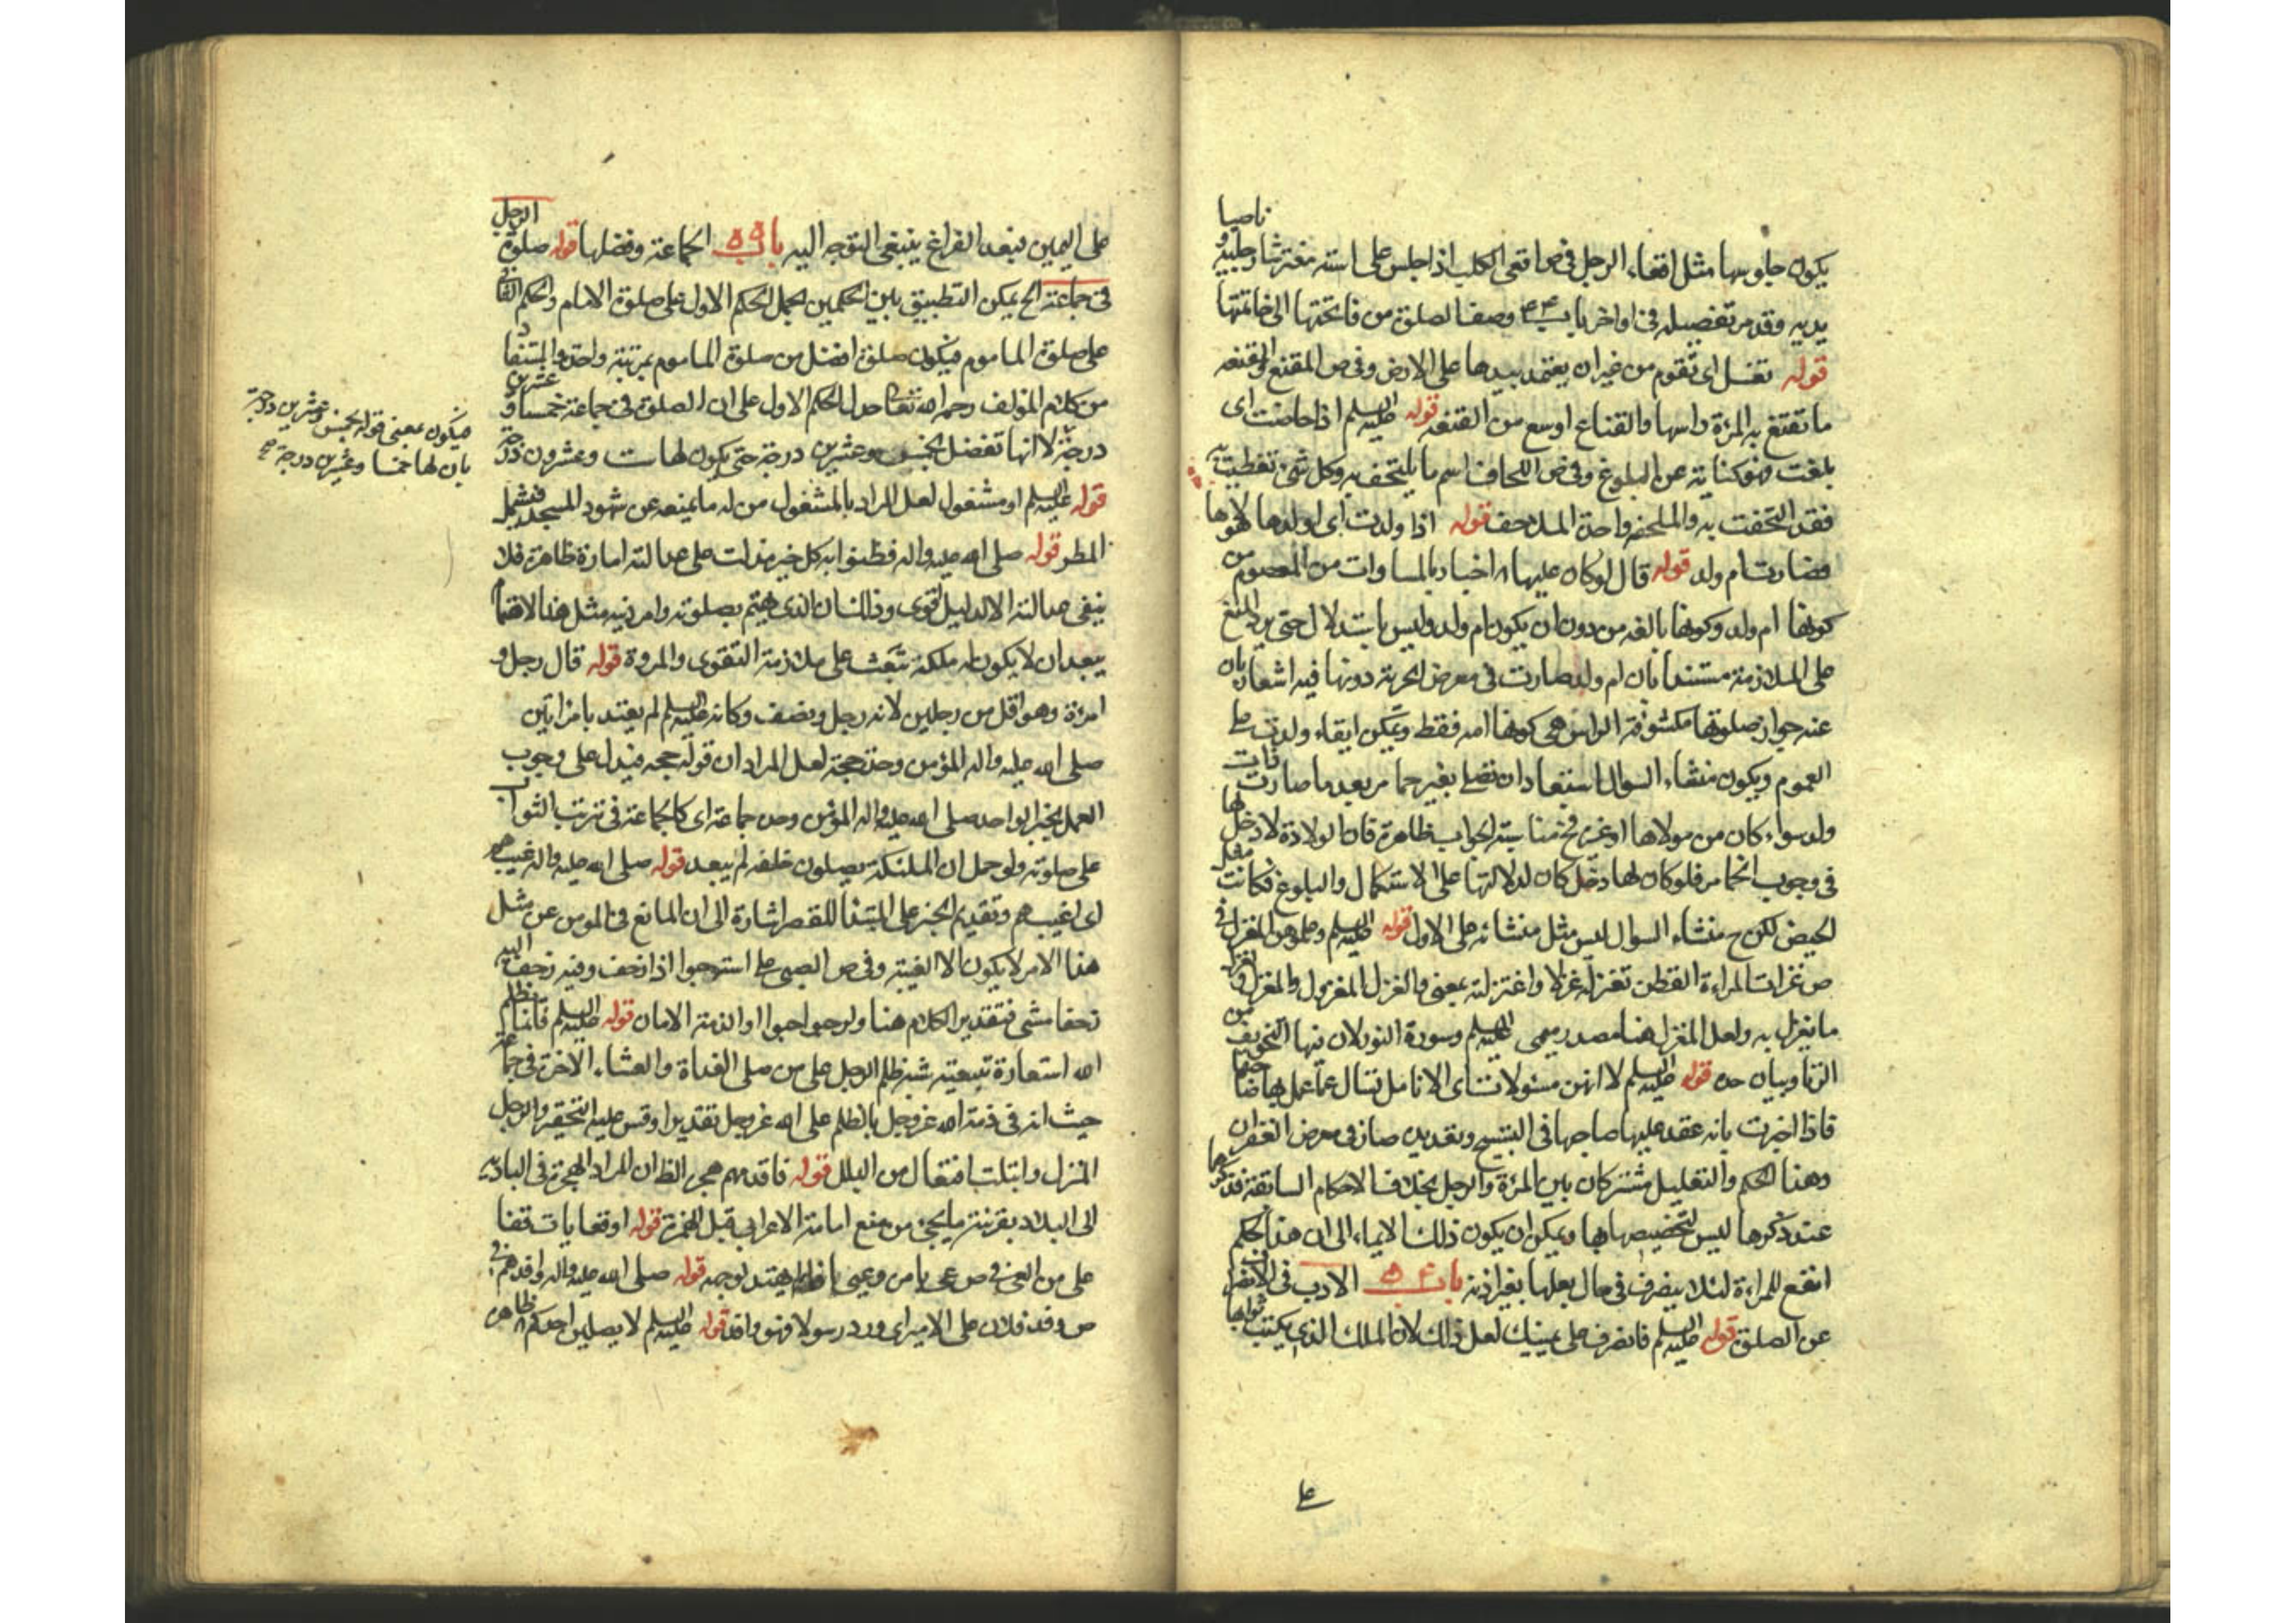 يكون جلوسها مثل اقعاء الرجل في ص اقعى الكلب اذا جلس على استه مفترشا رجليه و ناصبا
يديه وقد مر تفصيله في اواخر باب ٤٤ وصف الصلوة من فاتحتها الى خاتمتها
قوله تنسل اى تقوم من غير ان يعتمد بيدها على الارض وفى ص المقنع والمقنعه
ما تقنع به المرءة راسها والقناع اوسع من المقنعه قوله عليه السلم اذا حاضت اى
بلغت فهو كناية عن البلوغ وفى ص اللحاف اسم ما يلتحف به وكل شئ تغطيت به
فقد التحفت به والملحفه واحدة الملاحف قوله اذا ولدت اى اولدها مولاها
فصارت ام ولد قوله قال لو كان عليها اخبار بالمساوات من المعصوم من
كونها ام ولد وكونها بالغه من دون ان يكون ام ولد وليس باستدلال حتى يرد المنع
على الملازمة مستندا بان ام ولد صارت فى معرض الحرية دونها فيه اشعار بان
عنه جواز صلوتها مكشوفة الراس هى كونها امه فقط ويمكن ابقاء ولدت على
العموم ويكون منشاء السوال استبعاد ان تصلى بغير خمار بعد ما صارت ذات
ولد سواء كان من مولاها او غيره فمناسبته الجواب ظاهرة فان الولادة لا دخل لها
فى وجوب الخمار فلو كان لها دخل كان لدلالتها على الاستكمال والبلوغ فكانت مثل
الحيض لكن ح منشاء السوال ليس مثل منشائه على الاول قوله عليه السلم وعلموهن المغزل فى
ص غزلت المراءة القطن تغزله غزلا واغتزلته بمعنى والغزل المغزول والمغزل
ما يغزل به ولعل المغزل هنا مصدر ميمى عليه السلم وسورة النور لان فيها التخويف من
الزنا وبيان حده قوله عليه السلم لانهن مسئولات اى الانامل تسال عما عمل بها صاحبها
فاذا اخبرت بانه عقد عليها صاحبها فى التسبيح وتقديس صار فى معرض الغفران
وهذا الحكم والتعليل مشتركان بين المرءة والرجل بخلاف الاحكام السابقة فذكرها
عند ذكرها ليس لتخصيصها بها ويمكن ان يكون ذلك الايماء الى ان هذا الحكم
انفع للمراءة لئلا يتصرف فى مال بعلها بغير اذنه باب ٥٤ الادب فى الانصراف
عن الصلوة قوله عليه السلم فانصرف على يمينك لعل ذلك لان الملك الذى يكتب ثوابها
على اليمين فبعد الفراغ ينبغى التوجه اليه باب ٥٥ الجماعة وفضلها قوله صلوة الرجل
فى جماعة الخ يمكن التطبيق بين الحكمين بحمل الحكم الاول على صلوة الامام والحكم الثانى
على صلوة الماموم فيكون صلوة افضل من صلوة الماموم بمرتبة واحدة والمستفاد
من كلام المؤلف رحمه الله تعالى حمل الحكم الاول على ان الصلوة فى جماعة خمسا وعشرين
درجة لا انها تفضل بخمس وعشرين درجة حتى يكون لها ست وعشرون درجة
قوله عليه السلم او مشغول لعل المراد بالمشغول من له ما يمنعه عن شهود المسجد فيشمل
المطر قوله صلى الله عليه واله فظنوا به كل خير فدلت على عدالته امارة ظاهرة فلا
ينبغى عدالته الا لدليل قوى وذلك ان الذى يهتم بصلوته وامر دينه مثل هذا الاهتمام
يبعد ان لا يكون له ملكة تبعث على ملازمة التقوى والمروة قوله قال رجل و
امرءة وهو اقل من رجلين لانه رجل ونصف وكانه عليه السلم لم يعتد بامراتين
صلى الله عليه واله المؤمن وحده حجة لعل المراد ان قوله حجه فيدل على وجوب
العمل بخبر الواحد صلى الله عليه واله المؤمن وحده جماعة اى كالجماعة فى ترتب الثواب
على صلوته ولو حمل ان الملئكة يصلون خلفه لم يبعد قوله صلى الله عليه واله غيب هم
اى اغيب هم وتقديم الخبر على المبتدا للقصر اشارة الى ان المانع فى المومن عن مثل
هذا الامر لا يكون الا الغيبة وفى ص الصبى على استه حبوا اذا زحف وفيه زحف اليه
زحفا مشى فتقدير الكلام هنا ولو حبوا احبوا او الذمة الامان قوله عليه السلم فانما ظلم
الله استعارة تبعيته شبه ظلم الرجل على من صلى الغداة والعشاء الاخرة فى جماعة
حيث انه فى ذمة الله عز وجل بالظلم على الله عز وجل تقديرا وقس عليه التحقير والرجل
المنزل وابتلت افتعال من البلل قوله فاقدمهم هجر الظ ان المراد الهجرة فى البادية
الى البلاد بقرينة ما يجئ من منع امامة الاعرابى قبل الهجرة قوله او قعايات قفا
على من العى فى ص عى بامره وعيى اذا لم يهتد لوجهه قوله صلى الله عليه واله وافدهم فى
ص وفد فلان على الامير اى ورد رسولا فهو وافد قوله عليه السلم لا يصلين احدكم ظاهره
فيكون معنى قوله بخمس وعشرين درجة
بان لها خمسا وعشرين درجة صح